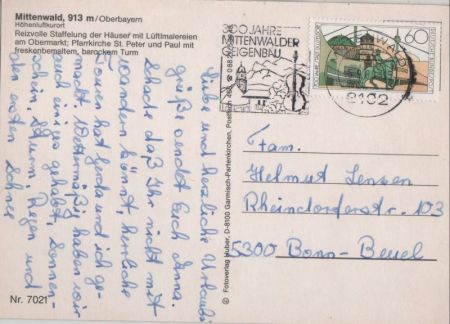 Mittenwald, 913 m/Oberbayern
Höhenluftkurort
Reizvolle Staffelung der Häuser mit Lüftlmalereien
am Obermarkt; Pfarrkirche St. Peter und Paul mit
freskenbemaltem, barockem Turm
Liebe und herzliche Urlaubs-
grüße sendet Euch Anna.
Schade daß Ihr nicht mit
wandern könnt, herrliche
Touren hat Gerda und ich ge-
macht. Wettermäßig haben wir
auch alles gehabt, Sonnen-
schein, Sturm, Regen und
den ersten Schnee
Nr. 7021
© Fotoverlag Huber, D-8100 Garmisch-Partenkirchen, Postfach
300 JAHRE
MITTENWALDER
GEIGENBAU
8102
60
Fam.
Helmut Lenzen
Rheindorferstr. 103
5300 Bonn-Beuel